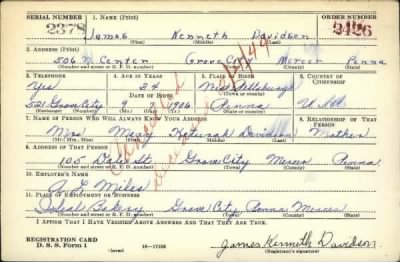 SERIAL NUMBER 1. NAME (Print) ORDER NUMBER
2378 James Kenneth Davidson 2426
(First) (Middle) (Last)
2. ADDRESS (Print)
506 N. Center Grove City Mercer Penna
(Number and street or R. F. D. number) (Town) (County) (State)
3. TELEPHONE 4. AGE IN YEARS 5. PLACE OF BIRTH 6. COUNTRY OF CITIZENSHIP
Yes 34
DATE OF BIRTH
521 Grove City 9 7 1906 Penna U.S.A.
(Exchange) (Number) (Mo.) (Day) (Yr.) (State or country)
7. NAME OF PERSON WHO WILL ALWAYS KNOW YOUR ADDRESS 8. RELATIONSHIP OF THAT PERSON
Mrs Mary Keturah Davidson Mother
(Mr., Mrs., Miss) (First) (Middle) (Last)
9. ADDRESS OF THAT PERSON
105 St. Grove City Mercer Penna
(Number and street or R. F. D. number) (Town) (County) (State)
10. EMPLOYER'S NAME
A. Miles
11. PLACE OF EMPLOYMENT OR BUSINESS
Ideal Bakery Grove City Penna Mercer
(Number and street or R. F. D. number) (Town) (County) (State)
I AFFIRM THAT I HAVE VERIFIED ABOVE ANSWERS AND THAT THEY ARE TRUE.
REGISTRATION CARD
D. S. S. Form 1 (over) 16—17105 James Kenneth Davidson
(Registrant's signature)
Cancelled